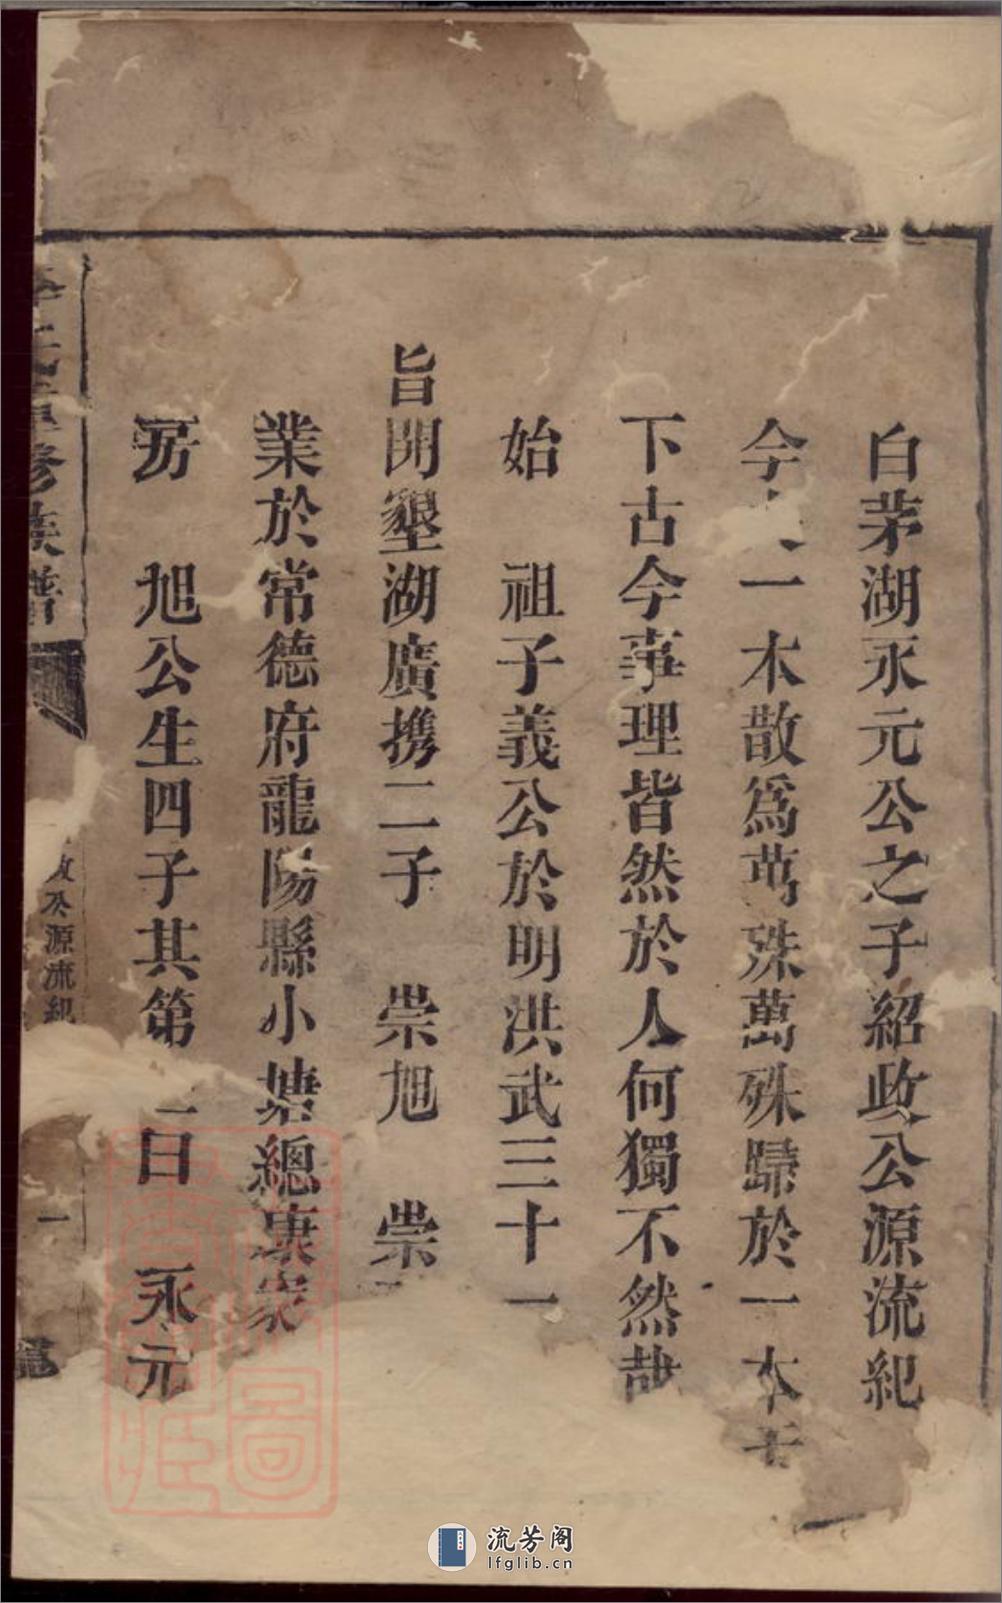 白茅湖永元公之子紹政公源流紀
今 一木散爲萬殊萬殊歸於一本
下古今事理皆然於人何獨不然哉
始 祖子義公於明洪武三十一
旨開墾湖廣携二子 崇旭 崇
業於常德府龍陽縣小塘總康家
房 旭公生四子其第 曰 永元
氏重修族譜
政公源流紀
一
流芳阁
lfglib.cn